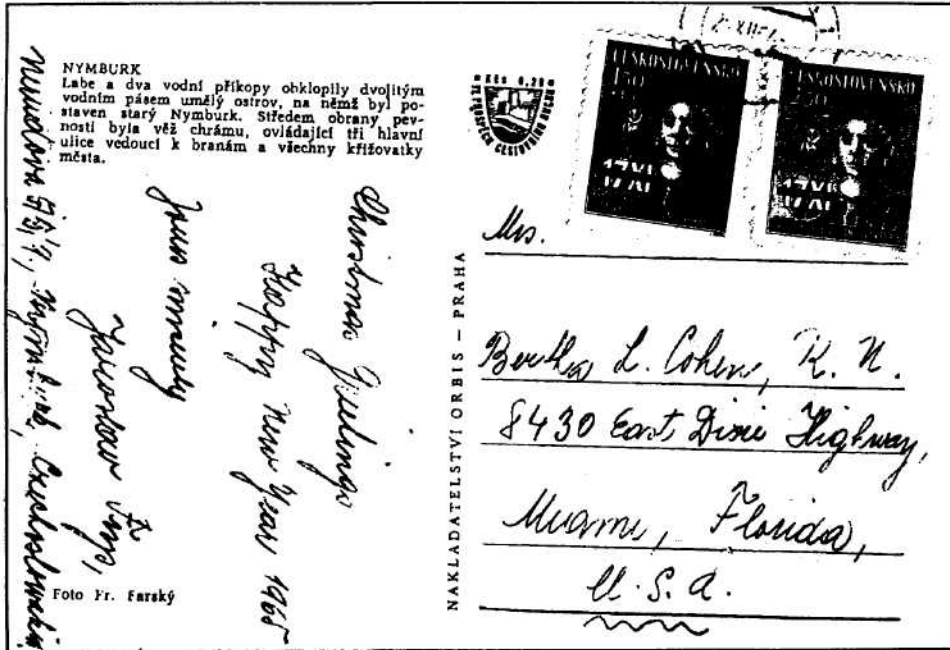 NYMBURK
Labe a dva vodní příkopy obklopily dvojitým
vodním pásem umělý ostrov, na němž byl po-
staven starý Nymburk. Středem obrany pev-
nosti byla věž chrámu, ovládající tři hlavní
ulice vedoucí k branám a všechny křižovatky
města.
Christmas Greetings
Happy New Year 1965
Yours sincerely
Jaroslav
Nymburk, Czechoslovakia
Foto Fr. Farský
NAKLADATELSTVÍ ORBIS – PRAHA
KČs 0,20
VE PROSPĚCH CESTOVNÍHO RUCHU
ČESKOSLOVENSKO
1,50
17.XI
17.XI
ČESKOSLOVENSKO
17.XI
17.XI
Mrs.
Bertha L. Cohen, R. N.
8430 East Dixie Highway,
Miami, Florida,
U. S. A.